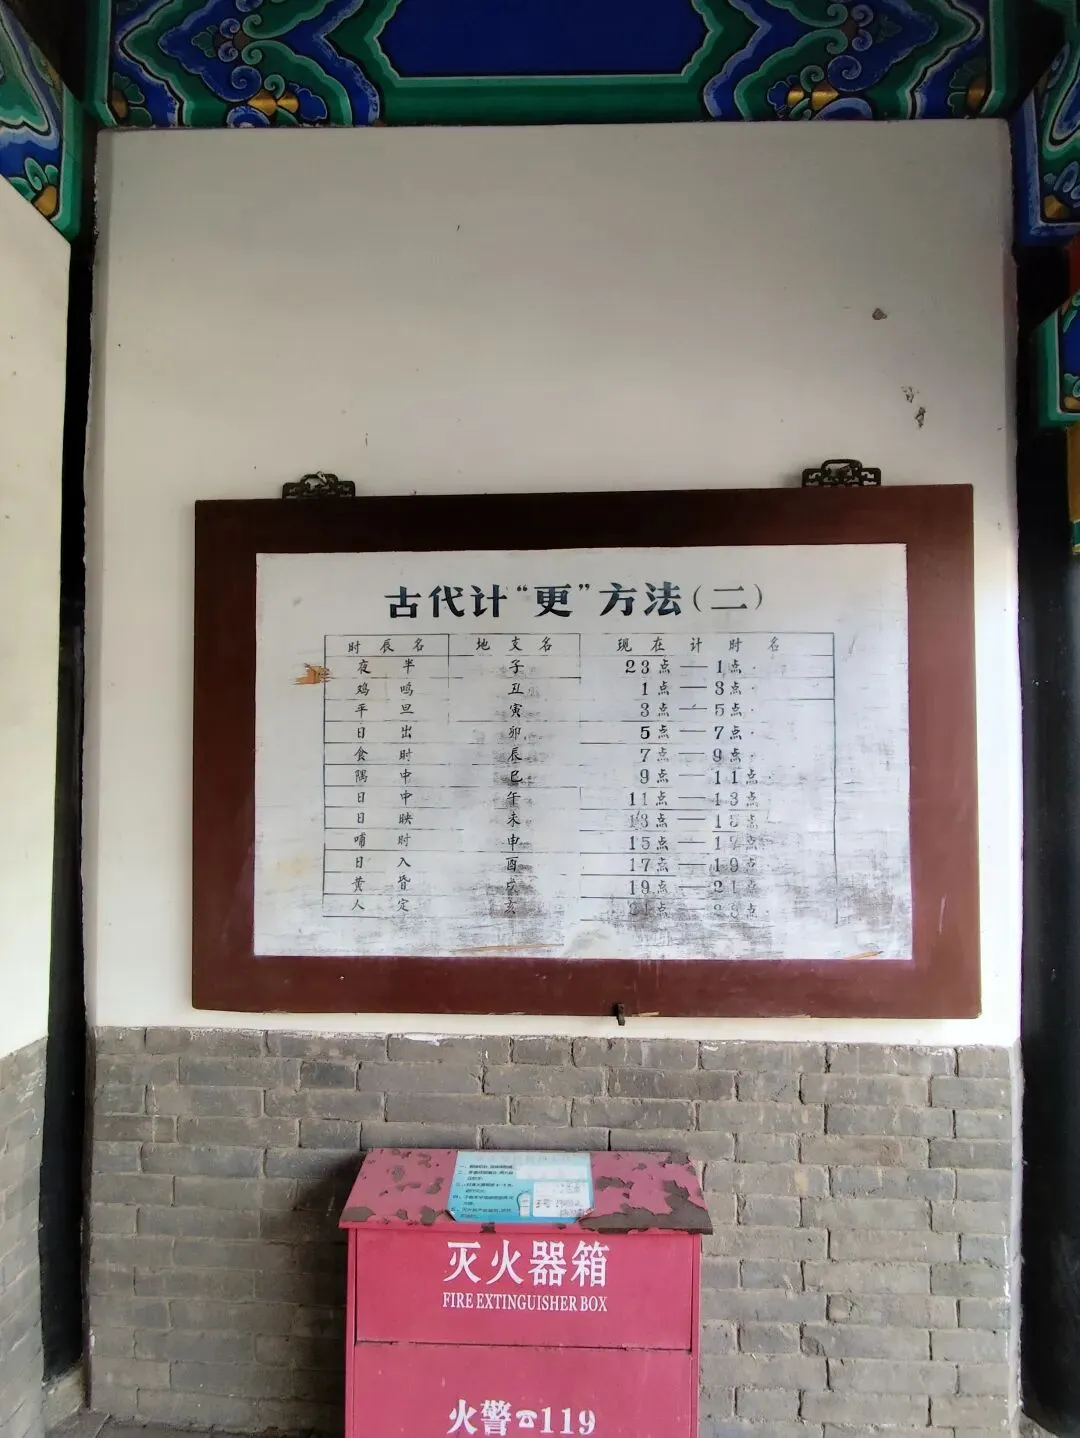 古代计“更”方法(二)
时辰名 地支名 现在计时名
夜半 子 23点—1点
鸡鸣 丑 1点—3点
平旦 寅 3点—5点
日出 卯 5点—7点
食时 辰 7点—9点
隅中 巳 9点—11点
日中 午 11点—13点
日昳 未 13点—15点
哺时 申 15点—17点
日入 酉 17点—19点
黄昏 戌 19点—21点
人定 亥 21点—23点
灭火器箱
FIRE EXTINGUISHER BOX
火警☎119